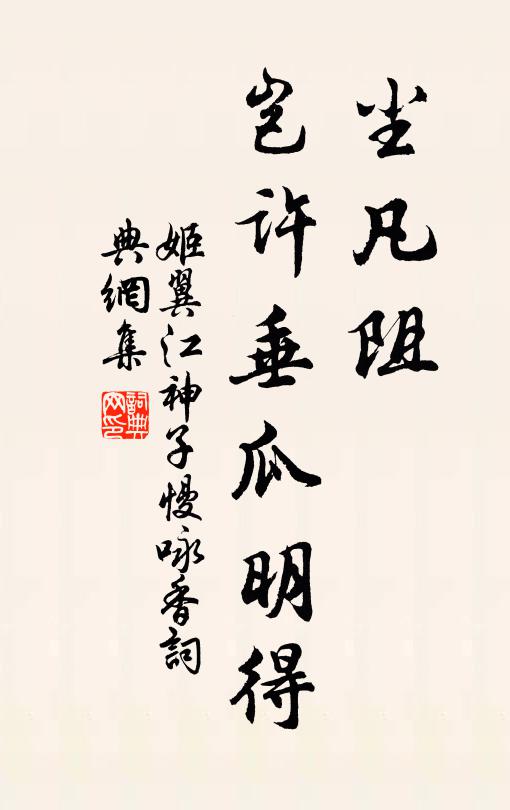 尘凡阻
岂许垂瓜明得
姬翼江神子慢咏香词
典網集
詞典
网印